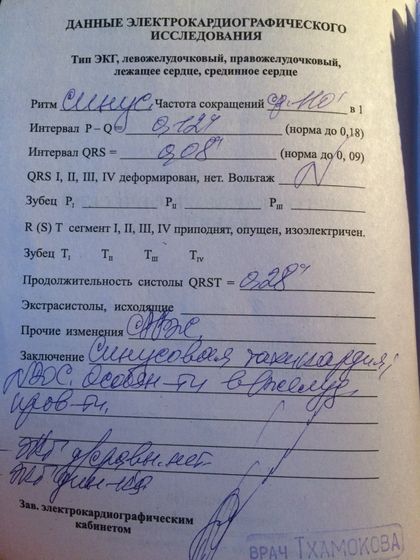 ДАННЫЕ ЭЛЕКТРОКАРДИОГРАФИЧЕСКОГО
ИССЛЕДОВАНИЯ
Тип ЭКГ, левожелудочковый, правожелудочковый,
лежащее сердце, срединное сердце
Ритм синус. Частота сокращений ср. 110' в 1
Интервал P – Q = 0,12" (норма до 0,18)
Интервал QRS = 0,08" (норма до 0, 09)
QRS I, II, III, IV деформирован, нет. Вольтаж N
Зубец P I P II P III
R (S) T сегмент I, II, III, IV приподнят, опущен, изоэлектричен.
Зубец T I T II T III T IV
Продолжительность систолы QRST = 0,28"
Экстрасистолы, исходящие
Прочие изменения
Заключение Синусовая тахикардия,
ЭОС. Особен-ти в/желуд
пров-ти.
ЭКГ д/сравн. нет
ЭКГ
Зав. электрокардиографическим
кабинетом
ВРАЧ ТХАМОКОВА